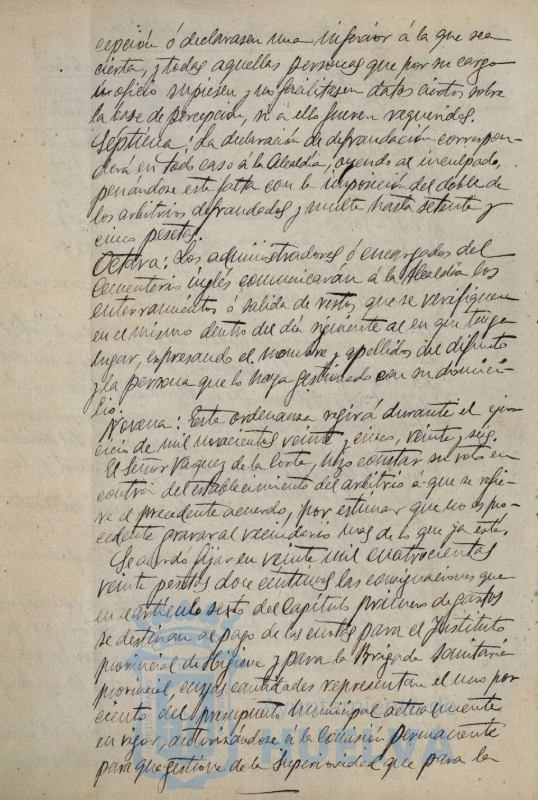 cepción ó declarasen una inferior á la que sea
cierta, y todas aquellas personas que por su cargo
ú oficio supiesen y no facilitasen datos ciertos sobre
la base de percepción, si á ello fueren requeridos.
Septima: La declaración de defraudación correspon-
derá en todo caso á la Alcaldía, oyendo al inculpado,
penándose esta falta con la imposición del doble de
los arbitrios defraudados y multa hasta setenta y
cinco pesetas.
Octava: Los administradores ó encargados del
Cementerio inglés comunicarán á la Alcaldía los
enterramientos ó salida de restos que se verifiquen
en el mismo dentro del día siguiente al en que tenga
lugar, expresando el nombre y apellidos del difunto
y la persona que lo haya gestionado con su domici-
lio.
Novena: Esta ordenanza regirá durante el ejer-
cicio de mil novecientos veinte y cinco, veinte y seis.
El Señor Vazquez de la Corte, hizo constar su voto en
contra del establecimiento del arbitrio á que se refie-
re el precedente acuerdo, por estimar que no es pro-
cedente gravar al vecindario mas de lo que ya está.
Se acordó fijar en veinte mil cuatrocientas
veinte pesetas doce centimos las consignaciones que
en el artículo sexto del Capítulo primero de gastos
se destinan al pago de las cuotas para el Instituto
provincial de Higiene y para la Brigada Sanitaria
provincial, cuyas cantidades representan el uno por
ciento del presupuesto municipal actualmente
en vigor, autorizándose á la Comisión permanente
para que gestione de la Superioridad que para la
HUELVA